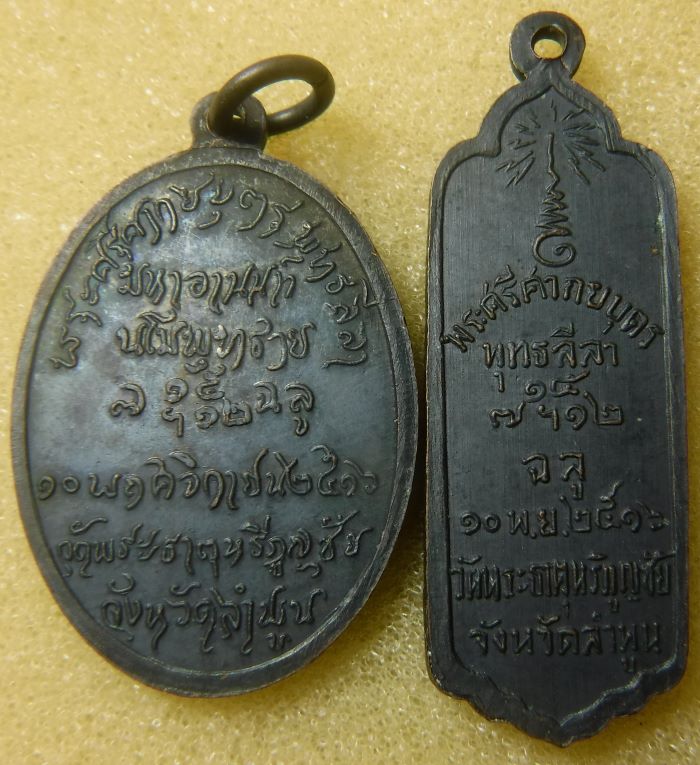 พระศรีศากยะบุตรพุทธลีลา
มหาอานนท์
นโมพุทธาย
๗ ๑๕ฯ๑๒ ฉลู
๑๐ พฤศจิกายน ๒๕๑๖
วัดพระธาตุหริภุญชัย
จังหวัดลำพูน
พระศรีศากยบุตร
พุทธลีลา
๗ ๑๕ฯ๑๒
ฉลู
๑๐ พ.ย. ๒๕๑๖
วัดพระธาตุหริภุญชัย
จังหวัดลำพูน